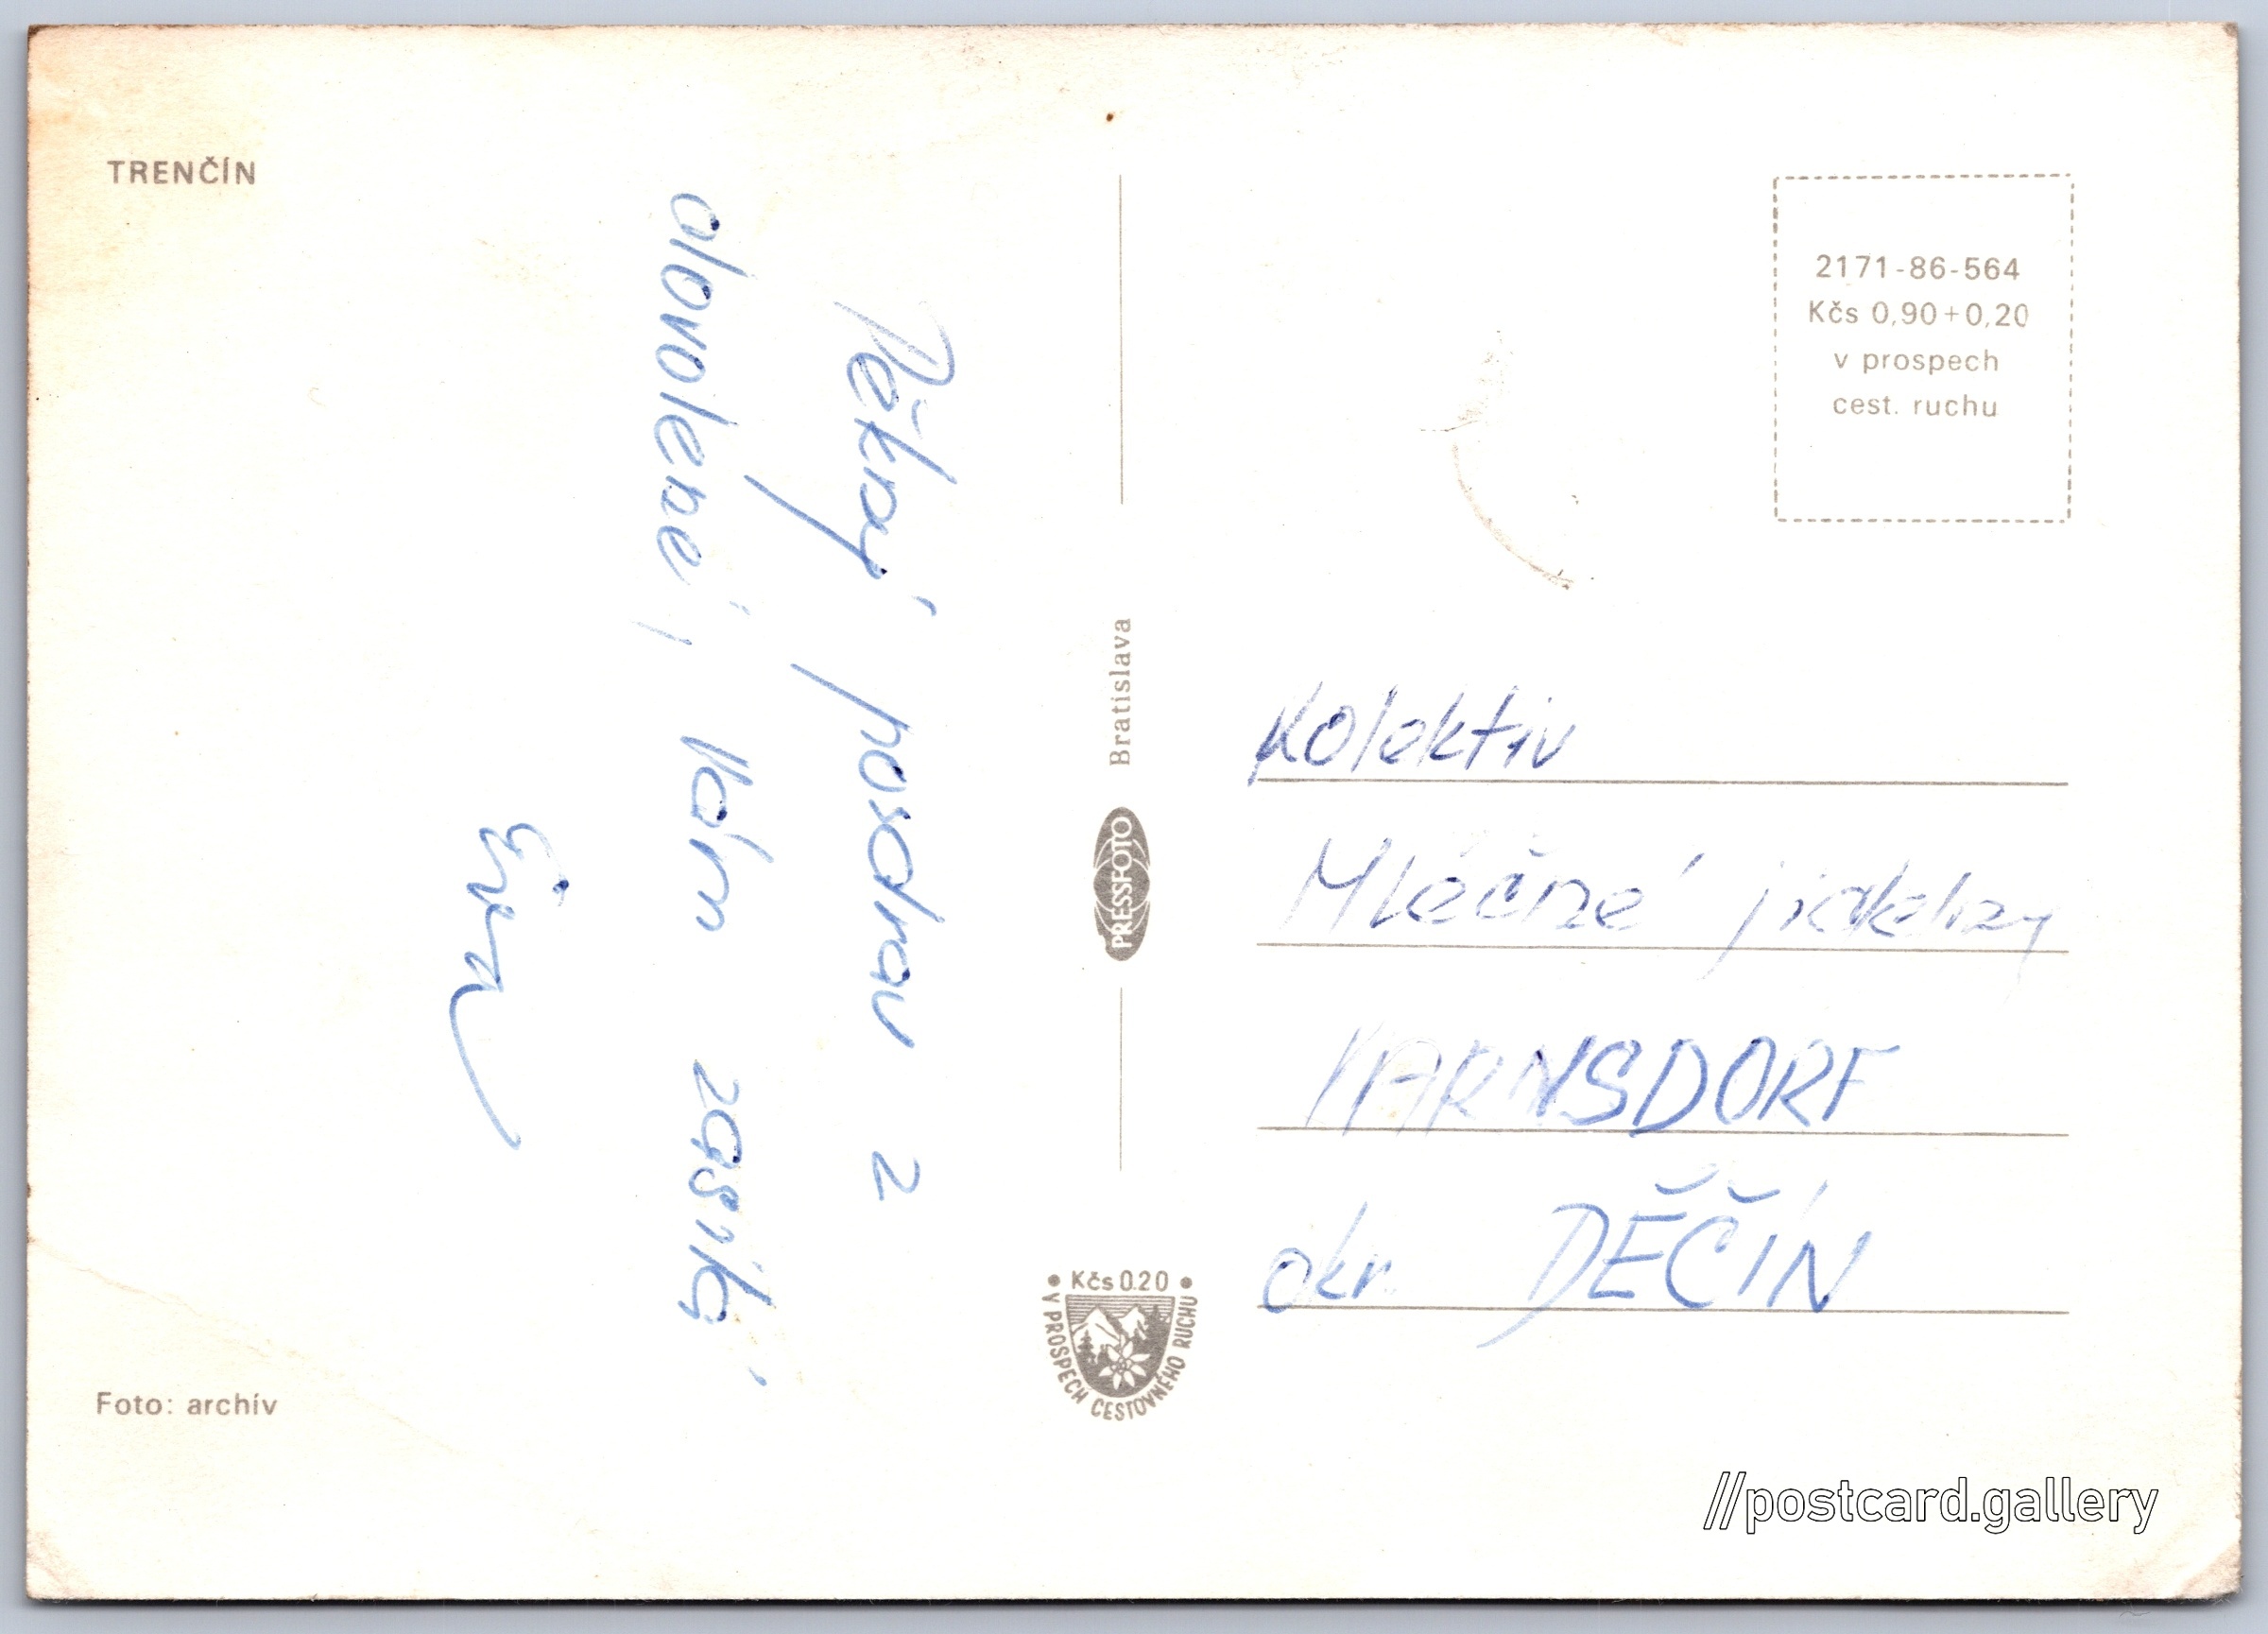 TRENČÍN
Pěkný pozdrav z
dovolené, Vám zasílá
Foto: archív
Bratislava
PRESSFOTO
• Kčs 0.20 •
V PROSPECH CESTOVNÉHO RUCHU
2171-86-564
Kčs 0,90+0,20
v prospech
cest. ruchu
Kolektiv
Mléčné jídelny
VARNSDORF
okr. DĚČÍN
//postcard.gallery